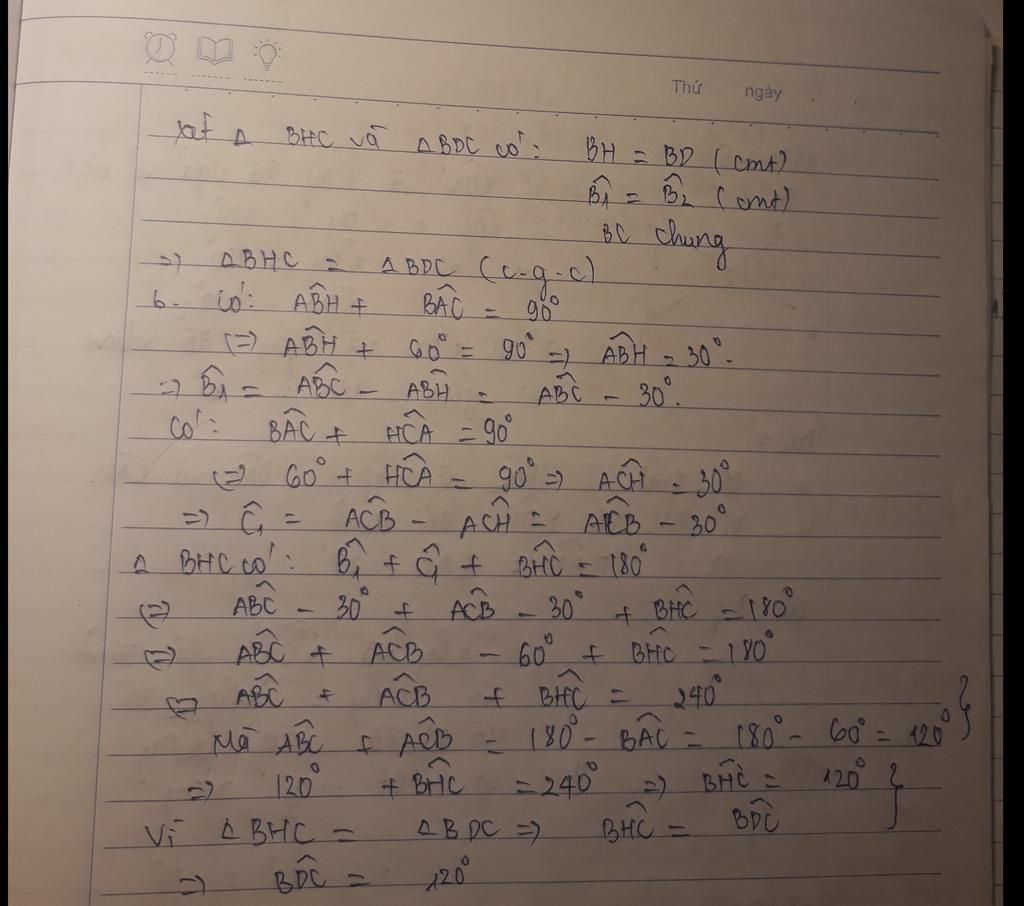 Thứ ngày . .
Xét Δ BHC và ΔBDC có: BH = BD (cmt)
B̂1 = B̂2 (cmt)
BC chung
=> ΔBHC = ΔBDC (c-g-c)
b. Có: AB̂H + BÂC = 90°
<=> AB̂H + 60° = 90° => AB̂H = 30°.
=> B̂1 = AB̂C - AB̂H = AB̂C - 30°.
Có: BÂC + HĈA = 90°
<=> 60° + HĈA = 90° => AĈH = 30°
=> Ĉ1 = AĈB - AĈH = AĈB - 30°
Δ BHC có: B̂1 + Ĉ1 + BĤC = 180°
<=> AB̂C - 30° + AĈB - 30° + BĤC = 180°
<=> AB̂C + AĈB - 60° + BĤC = 180°
<=> AB̂C + AĈB + BĤC = 240° }
Mà AB̂C + AĈB = 180° - BÂC = 180° - 60° = 120°
=> 120° + BĤC = 240° => BĤC = 120° }
Vì ΔBHC = ΔBDC => BĤC = BD̂C
=> BD̂C = 120°